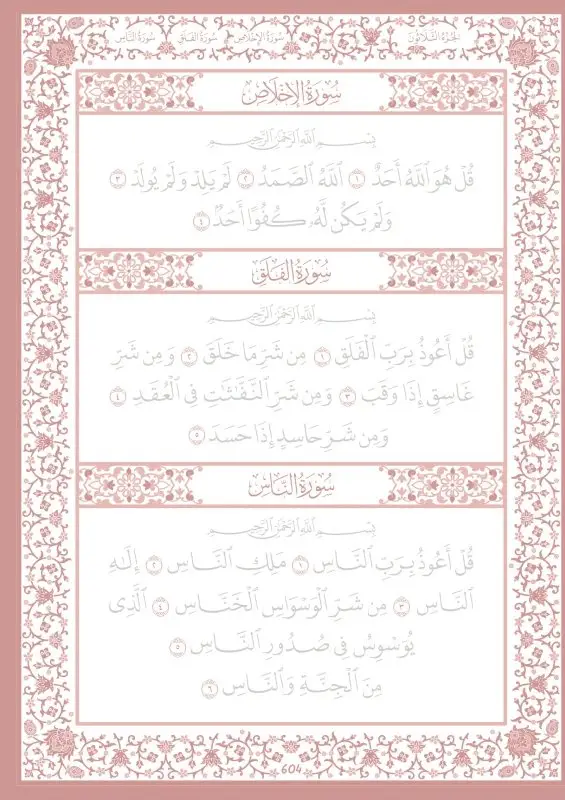 الجزء الثلاثون سورة الإخلاص سورة الفلق سورة الناس
سُورَةُ الإِخْلَاصِ
بِسْمِ ٱللَّهِ ٱلرَّحْمَٰنِ ٱلرَّحِيمِ
قُلْ هُوَ ٱللَّهُ أَحَدٌ ١ ٱللَّهُ ٱلصَّمَدُ ٢ لَمْ يَلِدْ وَلَمْ يُولَدْ ٣
وَلَمْ يَكُن لَّهُۥ كُفُوًا أَحَدٌۢ ٤
سُورَةُ الفَلَقِ
بِسْمِ ٱللَّهِ ٱلرَّحْمَٰنِ ٱلرَّحِيمِ
قُلْ أَعُوذُ بِرَبِّ ٱلْفَلَقِ ١ مِن شَرِّ مَا خَلَقَ ٢ وَمِن شَرِّ
غَاسِقٍ إِذَا وَقَبَ ٣ وَمِن شَرِّ ٱلنَّفَّٰثَٰتِ فِى ٱلْعُقَدِ ٤
وَمِن شَرِّ حَاسِدٍ إِذَا حَسَدَ ٥
سُورَةُ النَّاسِ
بِسْمِ ٱللَّهِ ٱلرَّحْمَٰنِ ٱلرَّحِيمِ
قُلْ أَعُوذُ بِرَبِّ ٱلنَّاسِ ١ مَلِكِ ٱلنَّاسِ ٢ إِلَٰهِ
ٱلنَّاسِ ٣ مِن شَرِّ ٱلْوَسْوَاسِ ٱلْخَنَّاسِ ٤ ٱلَّذِى
يُوَسْوِسُ فِى صُدُورِ ٱلنَّاسِ ٥
مِنَ ٱلْجِنَّةِ وَٱلنَّاسِ ٦
604